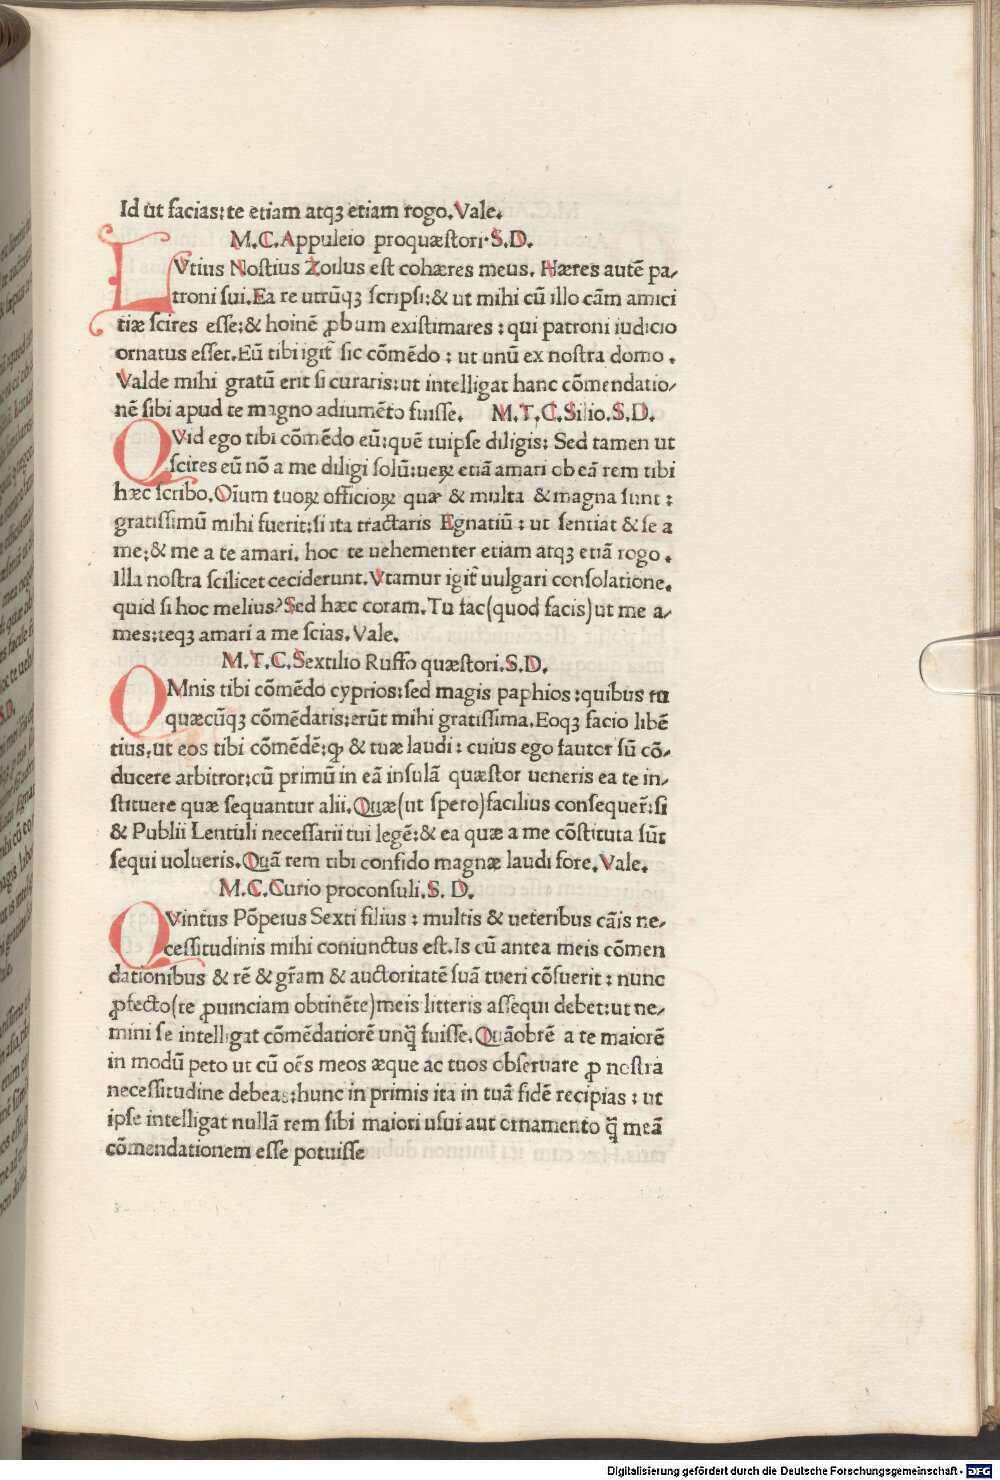 Id ut facias: te etiam atqꝫ etiam rogo. Vale.
M. C. Appuleio proquæstori. S. D.
LVtius Nostius Zoilus est cohæres meus. Hæres autē pa-
troni sui. Ea re utrūqꝫ scripsi: & ut mihi cū illo cām amici
tiæ scires esse: & hoinē ꝓbum existimares: qui patroni iudicio
ornatus esset. Eū tibi igit̄ sic cōmēdo: ut unū ex nostra domo.
Valde mihi gratū erit si curaris: ut intelligat hanc cōmendatio-
nē sibi apud te magno adiumēto fuisse. M. T. C. Silio. S. D.
QVid ego tibi cōmēdo eū: quē tuipse diligis: Sed tamen ut
scires eū nō a me diligi solū: ueꝝ etiā amari ob eā rem tibi
hæc scribo. Oīum tuoꝝ officioꝝ quæ & multa & magna sunt:
gratissimū mihi fuerit: si ita tractaris Egnatiū: ut sentiat & se a
me: & me a te amari. hoc te uehementer etiam atqꝫ etiā rogo.
Illa nostra scilicet ceciderunt. Vtamur igit̄ uulgari consolatione.
quid si hoc melius? Sed hæc coram. Tu fac (quod facis) ut me a-
mes: teqꝫ amari a me scias. Vale.
M. T. C. Sextilio Ruffo quæstori. S. D.
OMnis tibi cōmēdo cyprios: sed magis paphios: quibus tu
quæcūqꝫ cōmēdaris: erūt mihi gratissima. Eoqꝫ facio libē
tius, ut eos tibi cōmēdē: ꝙ & tuæ laudi: cuius ego fautor sū cō-
ducere arbitror: cū primū in eā insulā quæstor ueneris ea te in-
stituere quæ sequantur alii. Quæ (ut spero) facilius consequer̄: si
& Publii Lentuli necessarii tui legē: & ea quæ a me cōstituta sūt
sequi uolueris. Quā rem tibi confido magnæ laudi fore. Vale.
M. C. Curio proconsuli. S. D.
QVintus Pōpeius Sexti filius: multis & ueteribus cāis ne-
cessitudinis mihi coniunctus est. Is cū antea meis cōmen
dationibus & rē & gr̄am & auctoritatē suā tueri cōsuerit: nunc
ꝓfecto (te ꝓuinciam obtinēte) meis litteris assequi debet: ut ne-
mini se intelligat cōmēdatiorē unq̄ fuisse. Quāobrē a te maiorē
in modū peto ut cū oēs meos æque ac tuos obseruare ꝓ nostra
necessitudine debeas: hunc in primis ita in tuā fidē recipias: ut
ipse intelligat nullā rem sibi maiori usui aut ornamento q̄ meā
cōmendationem esse potuisse
Digitalisierung gefördert durch die Deutsche Forschungsgemeinschaft - DFG